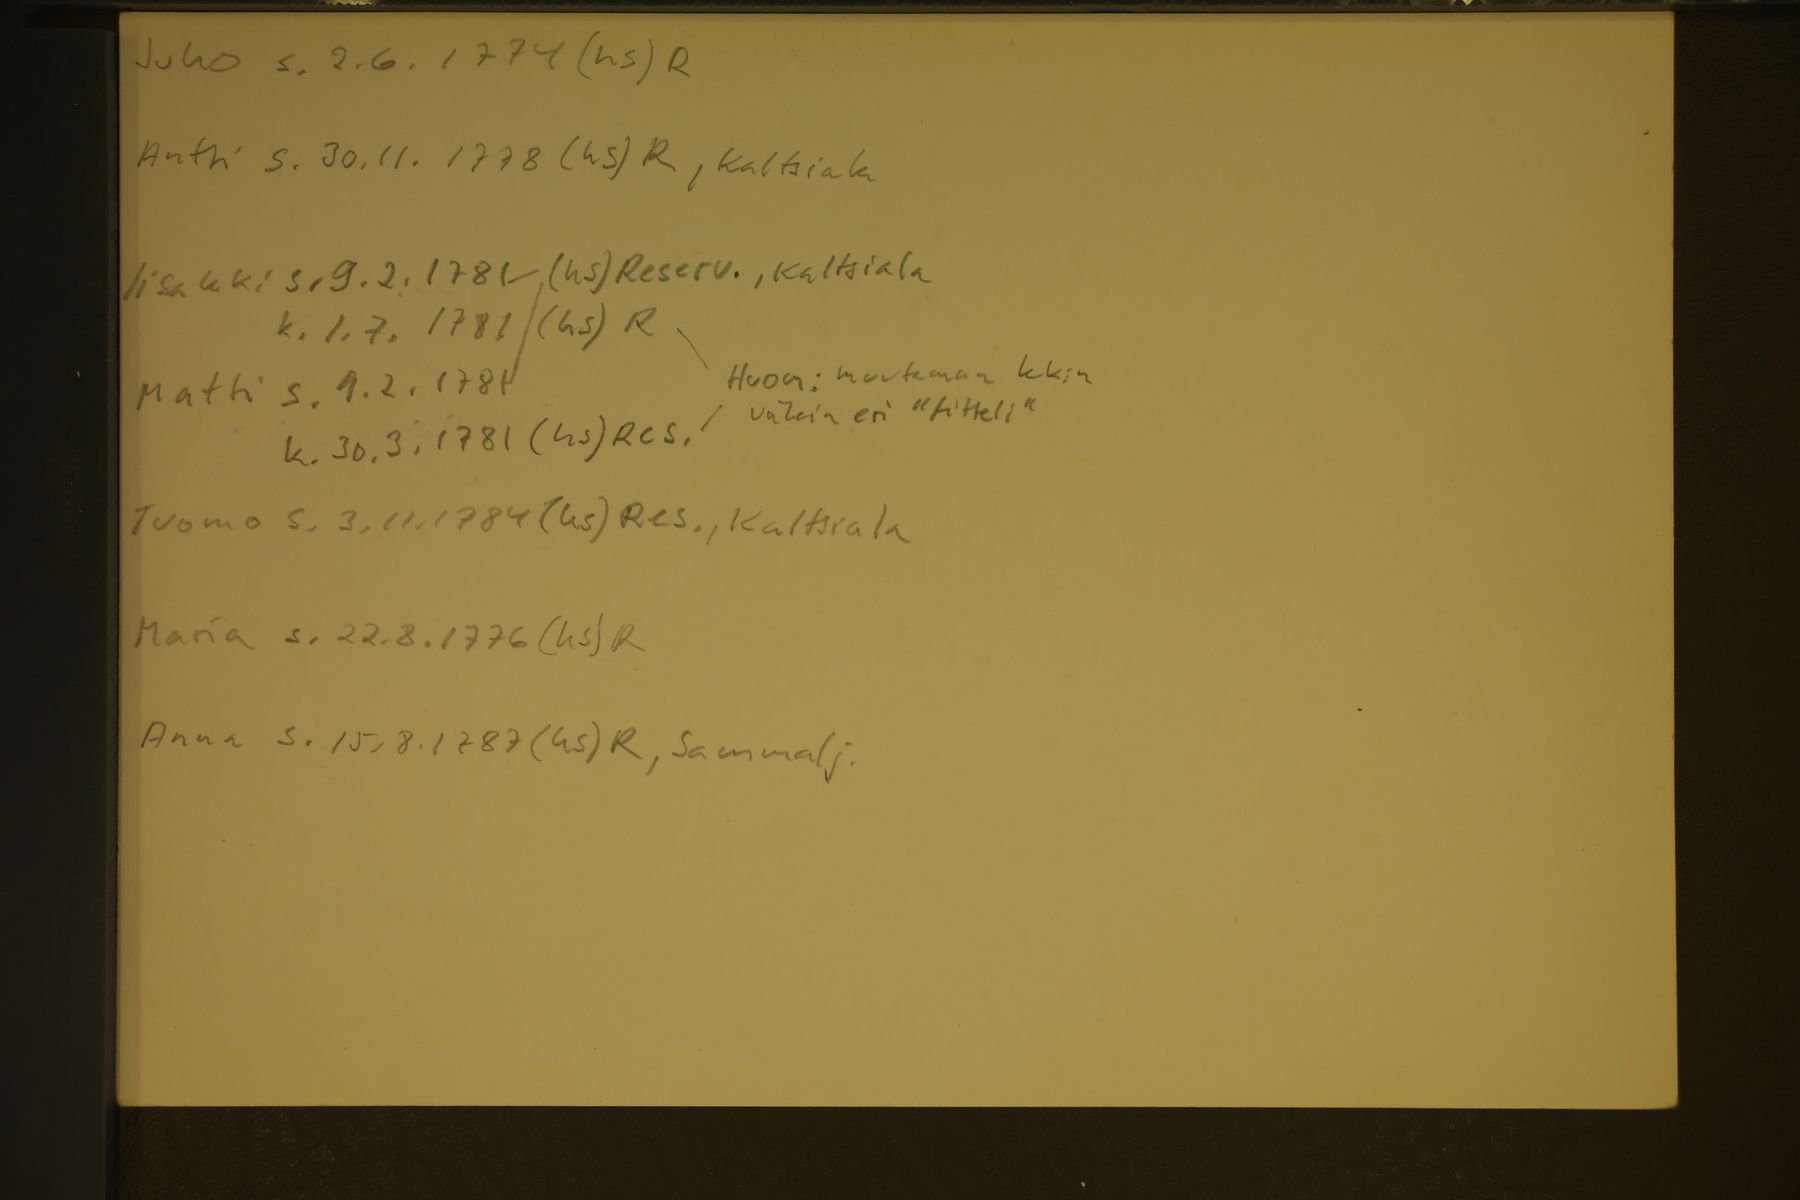 Juho s. 2.6. 1774 (hs) R
Antti s. 30.11. 1778 (hs) R, Kaltsiala
Iisakki s. 9.2. 1781 (hs) Reserv., Kaltsiala
k. 1.7. 1781 (hs) R
Huom: muutaman kk:n
Matti s. 9.2. 1781
välein eri "titteli"
k. 30.3. 1781 (hs) Res.
Tuomo s. 3.11.1784 (hs) Res., Kaltsiala
Maria s. 22.8.1776 (hs) R
Anna s. 15.8.1787 (hs) R, Sammalj.